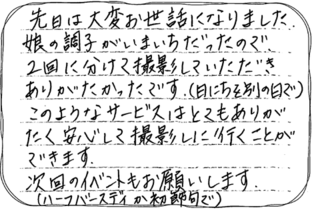 先日は大変お世話になりました。
娘の調子がいまいちだったので、
2回に分けて撮影していただき
ありがたかったです。(日にちを別の日で)
このようなサービスはとてもありが
たく安心して撮影しに行くことが
できます。
次回のイベントもお願いします。
(ハーフバースディか初節句で)